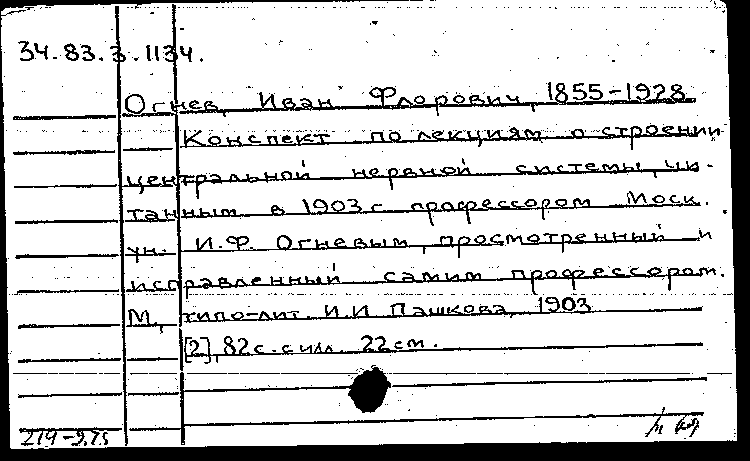 34.83.3.1134.
Огнев, Иван Флорович, 1855-1928
Конспект по лекциям о строении
центральной нервной системы, чи-
танным в 1903 г. профессором Моск.
ун. И.Ф. Огневым, просмотренный и
исправленный самим профессором.
М., типо-лит. И.И Пашкова, 1903
[2], 82 с. с илл. 22 см.
219-9.75